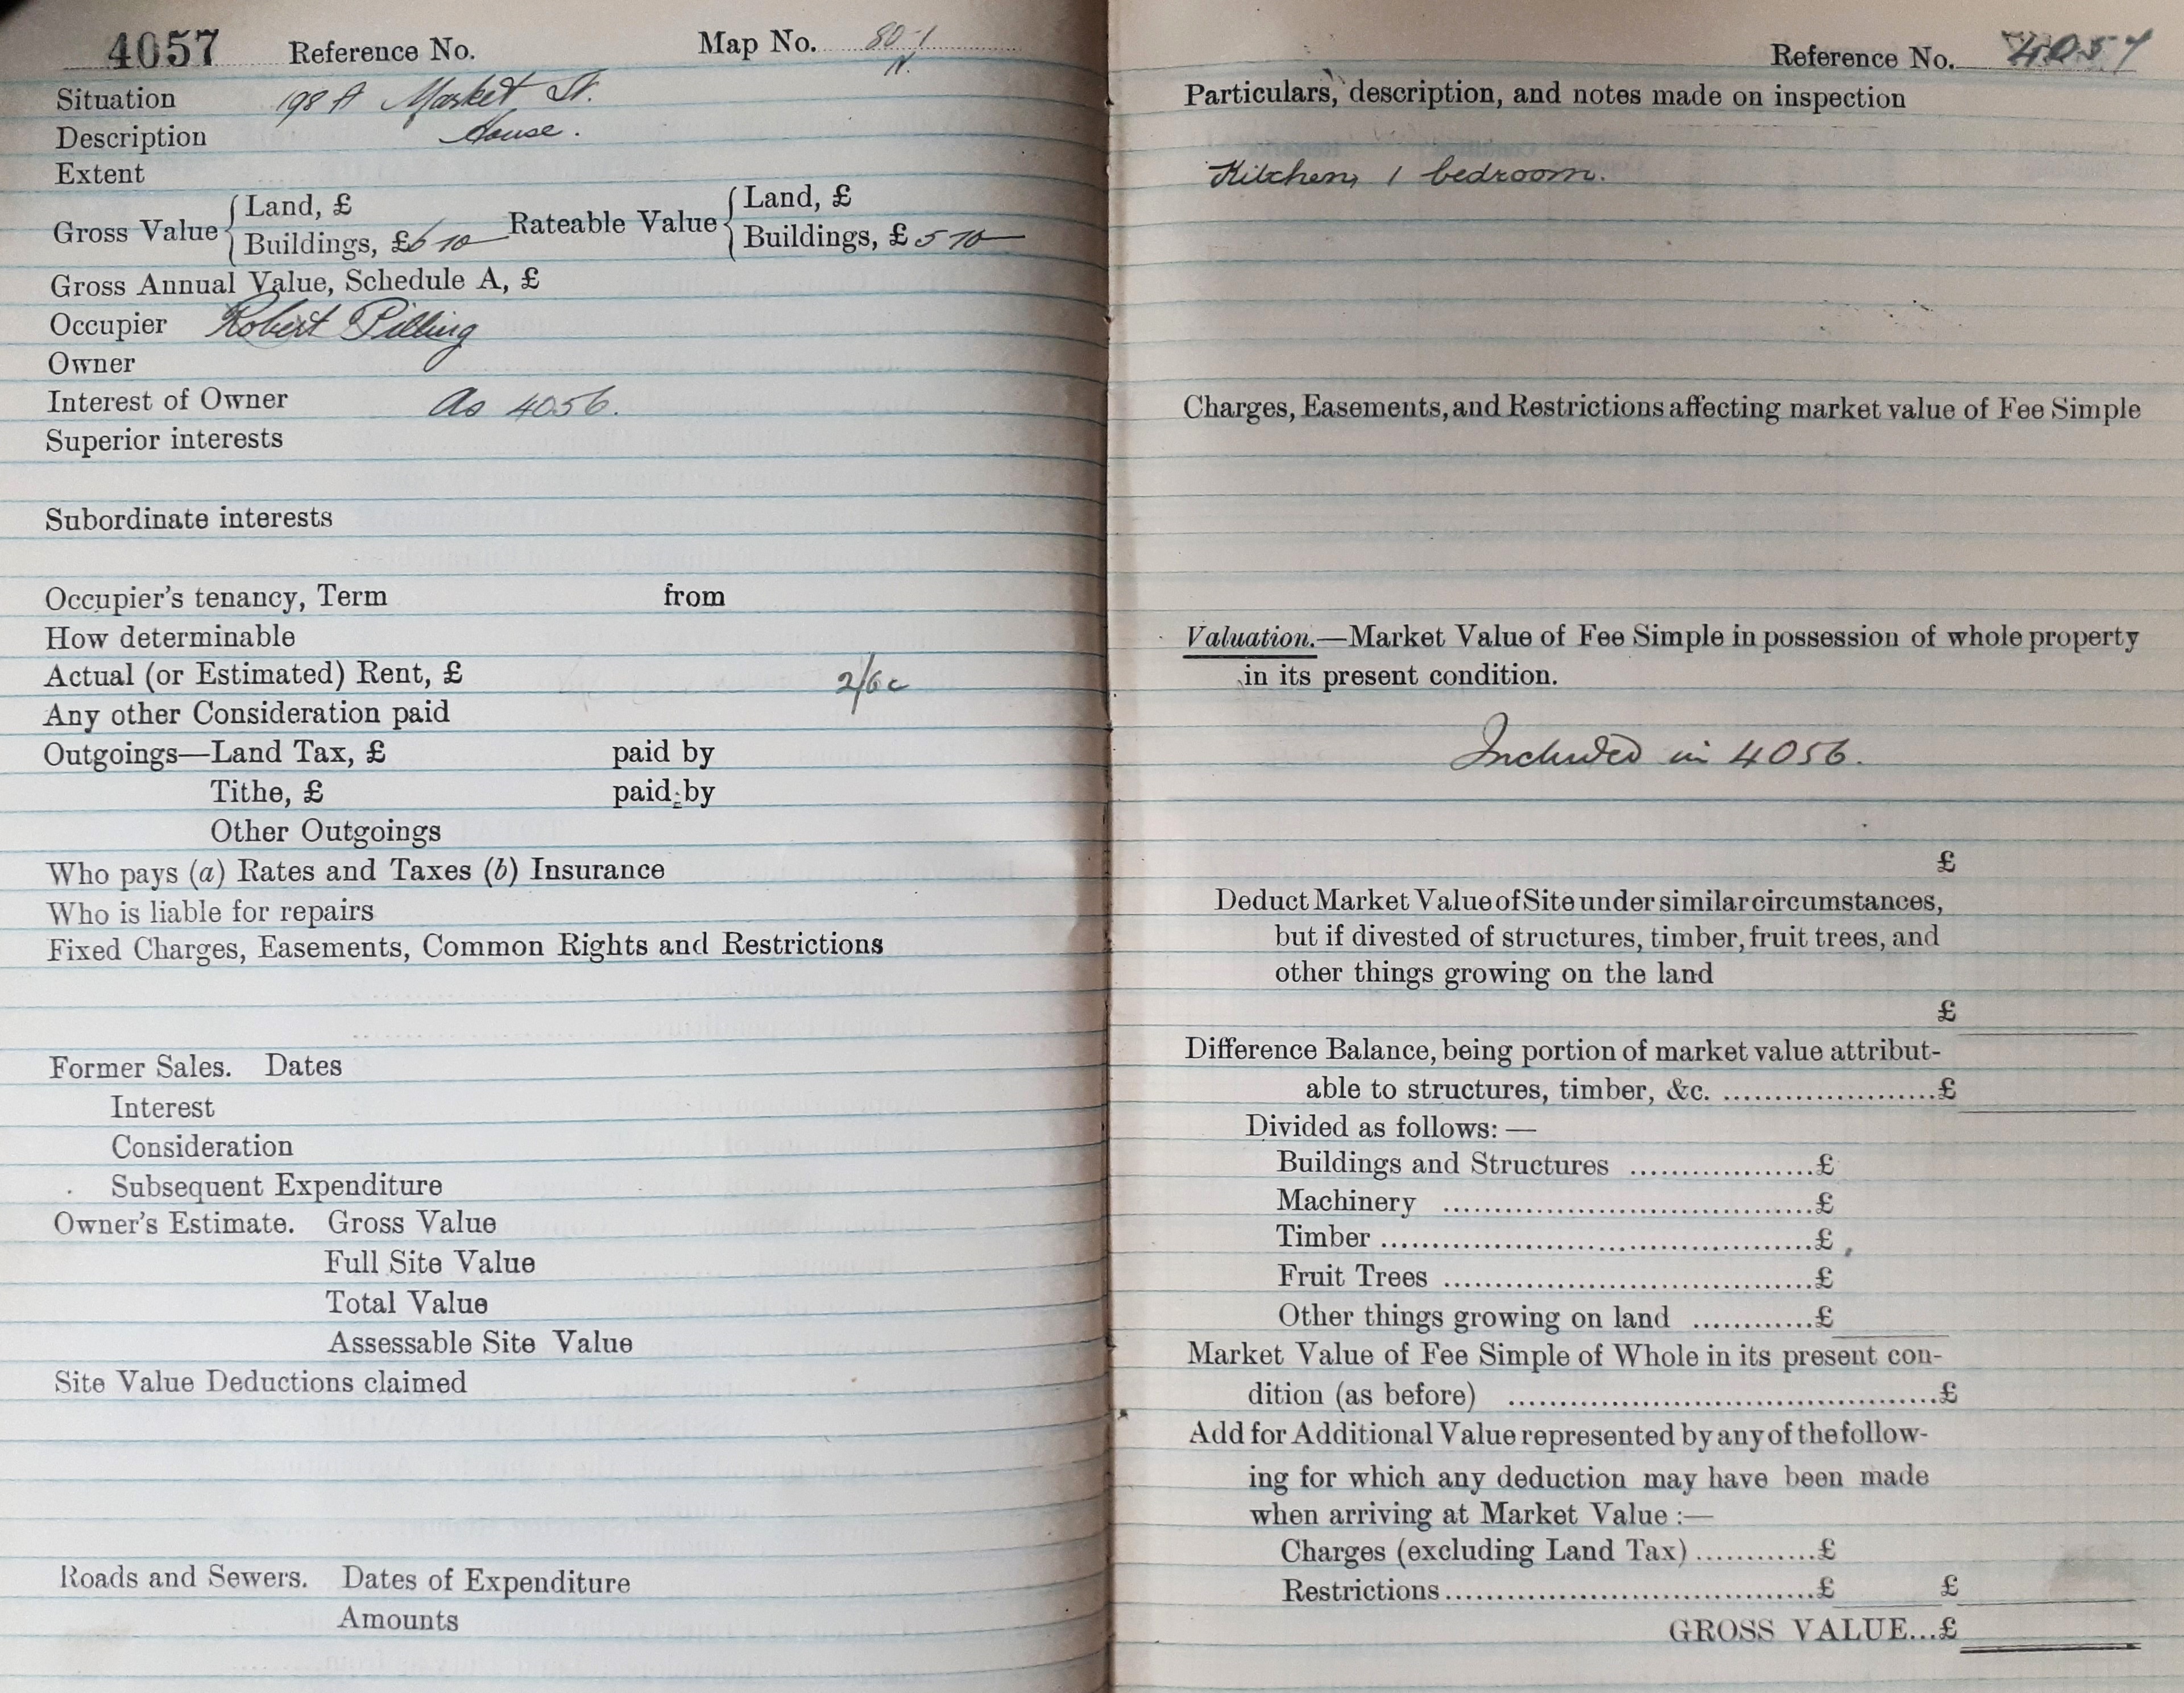 4057 Reference No. Map No. 80-1
N.
Situation 198 A Market St.
Description House.
Extent
Gross Value { Land, £ Rateable Value { Land, £
Buildings, £6 10 — Buildings, £ 5 10 —
Gross Annual Value, Schedule A, £
Occupier Robert Pilling
Owner
Interest of Owner As 4056.
Superior interests
Subordinate interests
Occupier's tenancy, Term from
How determinable
Actual (or Estimated) Rent, £ 2/6
Any other Consideration paid
Outgoings—Land Tax, £ paid by
Tithe, £ paid by
Other Outgoings
Who pays (a) Rates and Taxes (b) Insurance
Who is liable for repairs
Fixed Charges, Easements, Common Rights and Restrictions
Former Sales. Dates
Interest
Consideration
Subsequent Expenditure
Owner's Estimate. Gross Value
Full Site Value
Total Value
Assessable Site Value
Site Value Deductions claimed
Roads and Sewers. Dates of Expenditure
Amounts
Reference No. 4057
Particulars, description, and notes made on inspection
Kitchen, 1 bedroom.
Charges, Easements, and Restrictions affecting market value of Fee Simple
Valuation.—Market Value of Fee Simple in possession of whole property
in its present condition.
Included in 4056.
£
Deduct Market Value of Site under similar circumstances,
but if divested of structures, timber, fruit trees, and
other things growing on the land
£
Difference Balance, being portion of market value attribut-
able to structures, timber, &c. ......................£
Divided as follows: —
Buildings and Structures ..................£
Machinery ......................................£
Timber ............................................£
Fruit Trees ......................................£
Other things growing on land ............£
Market Value of Fee Simple of Whole in its present con-
dition (as before) ............................................£
Add for Additional Value represented by any of the follow-
ing for which any deduction may have been made
when arriving at Market Value :—
Charges (excluding Land Tax) ............£
Restrictions.......................................£ £
GROSS VALUE...£